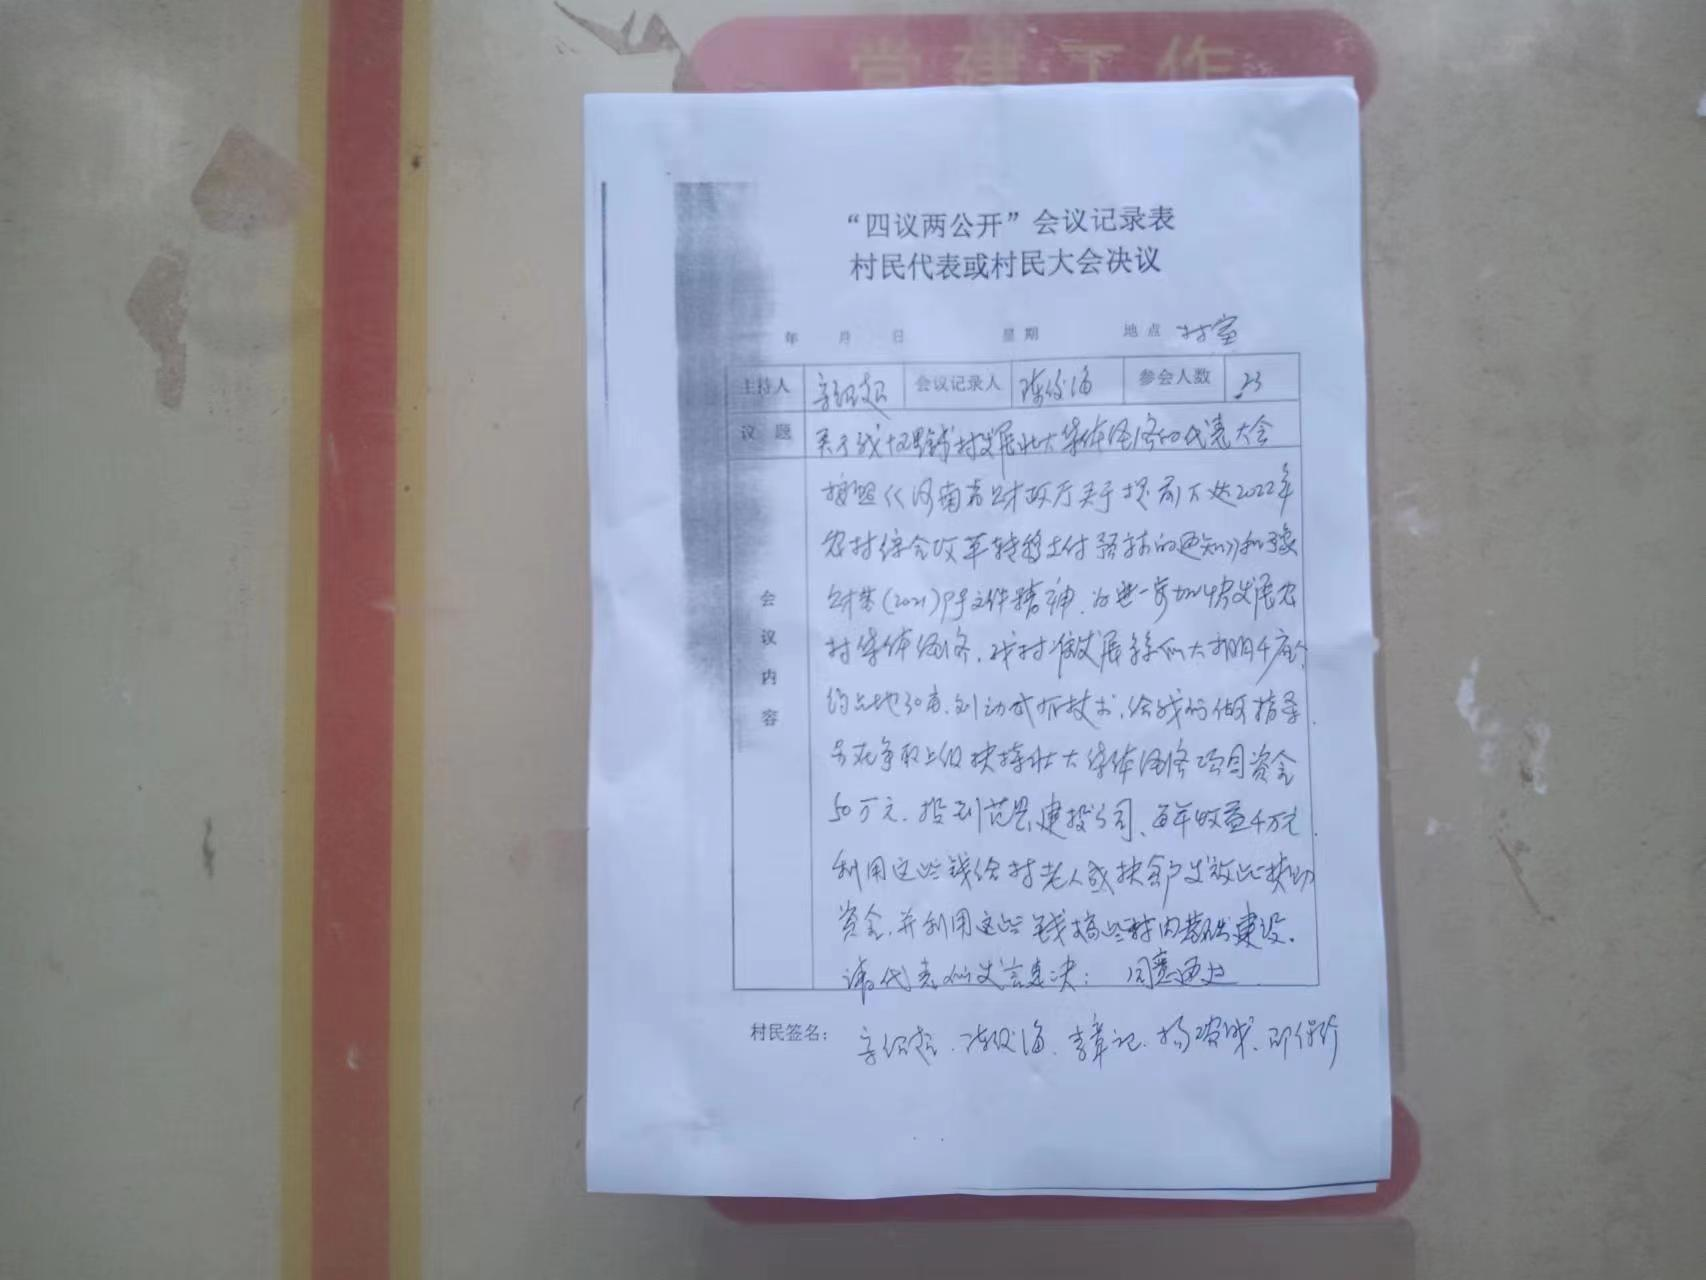 党建工作
“四议两公开”会议记录表
村民代表或村民大会决议
年 月 日 星期 地点 村室
主持人 会议记录人 陈俊海 参会人数 23
议题 关于 村发展壮大集体经济的代表大会
会议内容
按照《河南省财政厅关于提前下达2022年
农村综合改革转移支付预算的通知》和豫
财 (2021) 号文件精神,为进一步加快发展农
村集体经济,我村准发展 大棚4座,
约占地30亩, 技术,给我们做指导,
另在争取上级扶持壮大集体经济项目资金
50万元,投到范县建投公司,每年收益4万元,
利用这些钱给村老人或扶贫户发放些扶助
资金,并利用这些钱搞些村内基础建设。
请代表们发言表决: 同意通过
村民签名: 陈俊海、李章记、